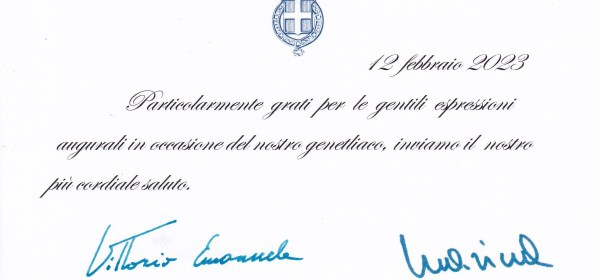 12 febbraio 2023
Particolarmente grati per le gentili espressioni
augurali in occasione del nostro genetliaco, inviamo il nostro
più cordiale saluto.
Vittorio Emanuele Marina